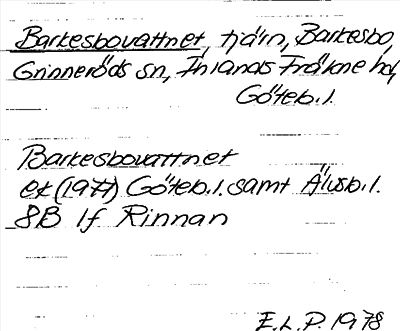 Barkesbovattnet, tjärn, Barkesbo,
Grinneröds sn, Inlands Fräkne hd,
Göteb. l.
Barkesbovattnet
ek (1977) Göteb. l. samt Älvsb. l.
8B 1f Rinnan
E.L.P. 1978